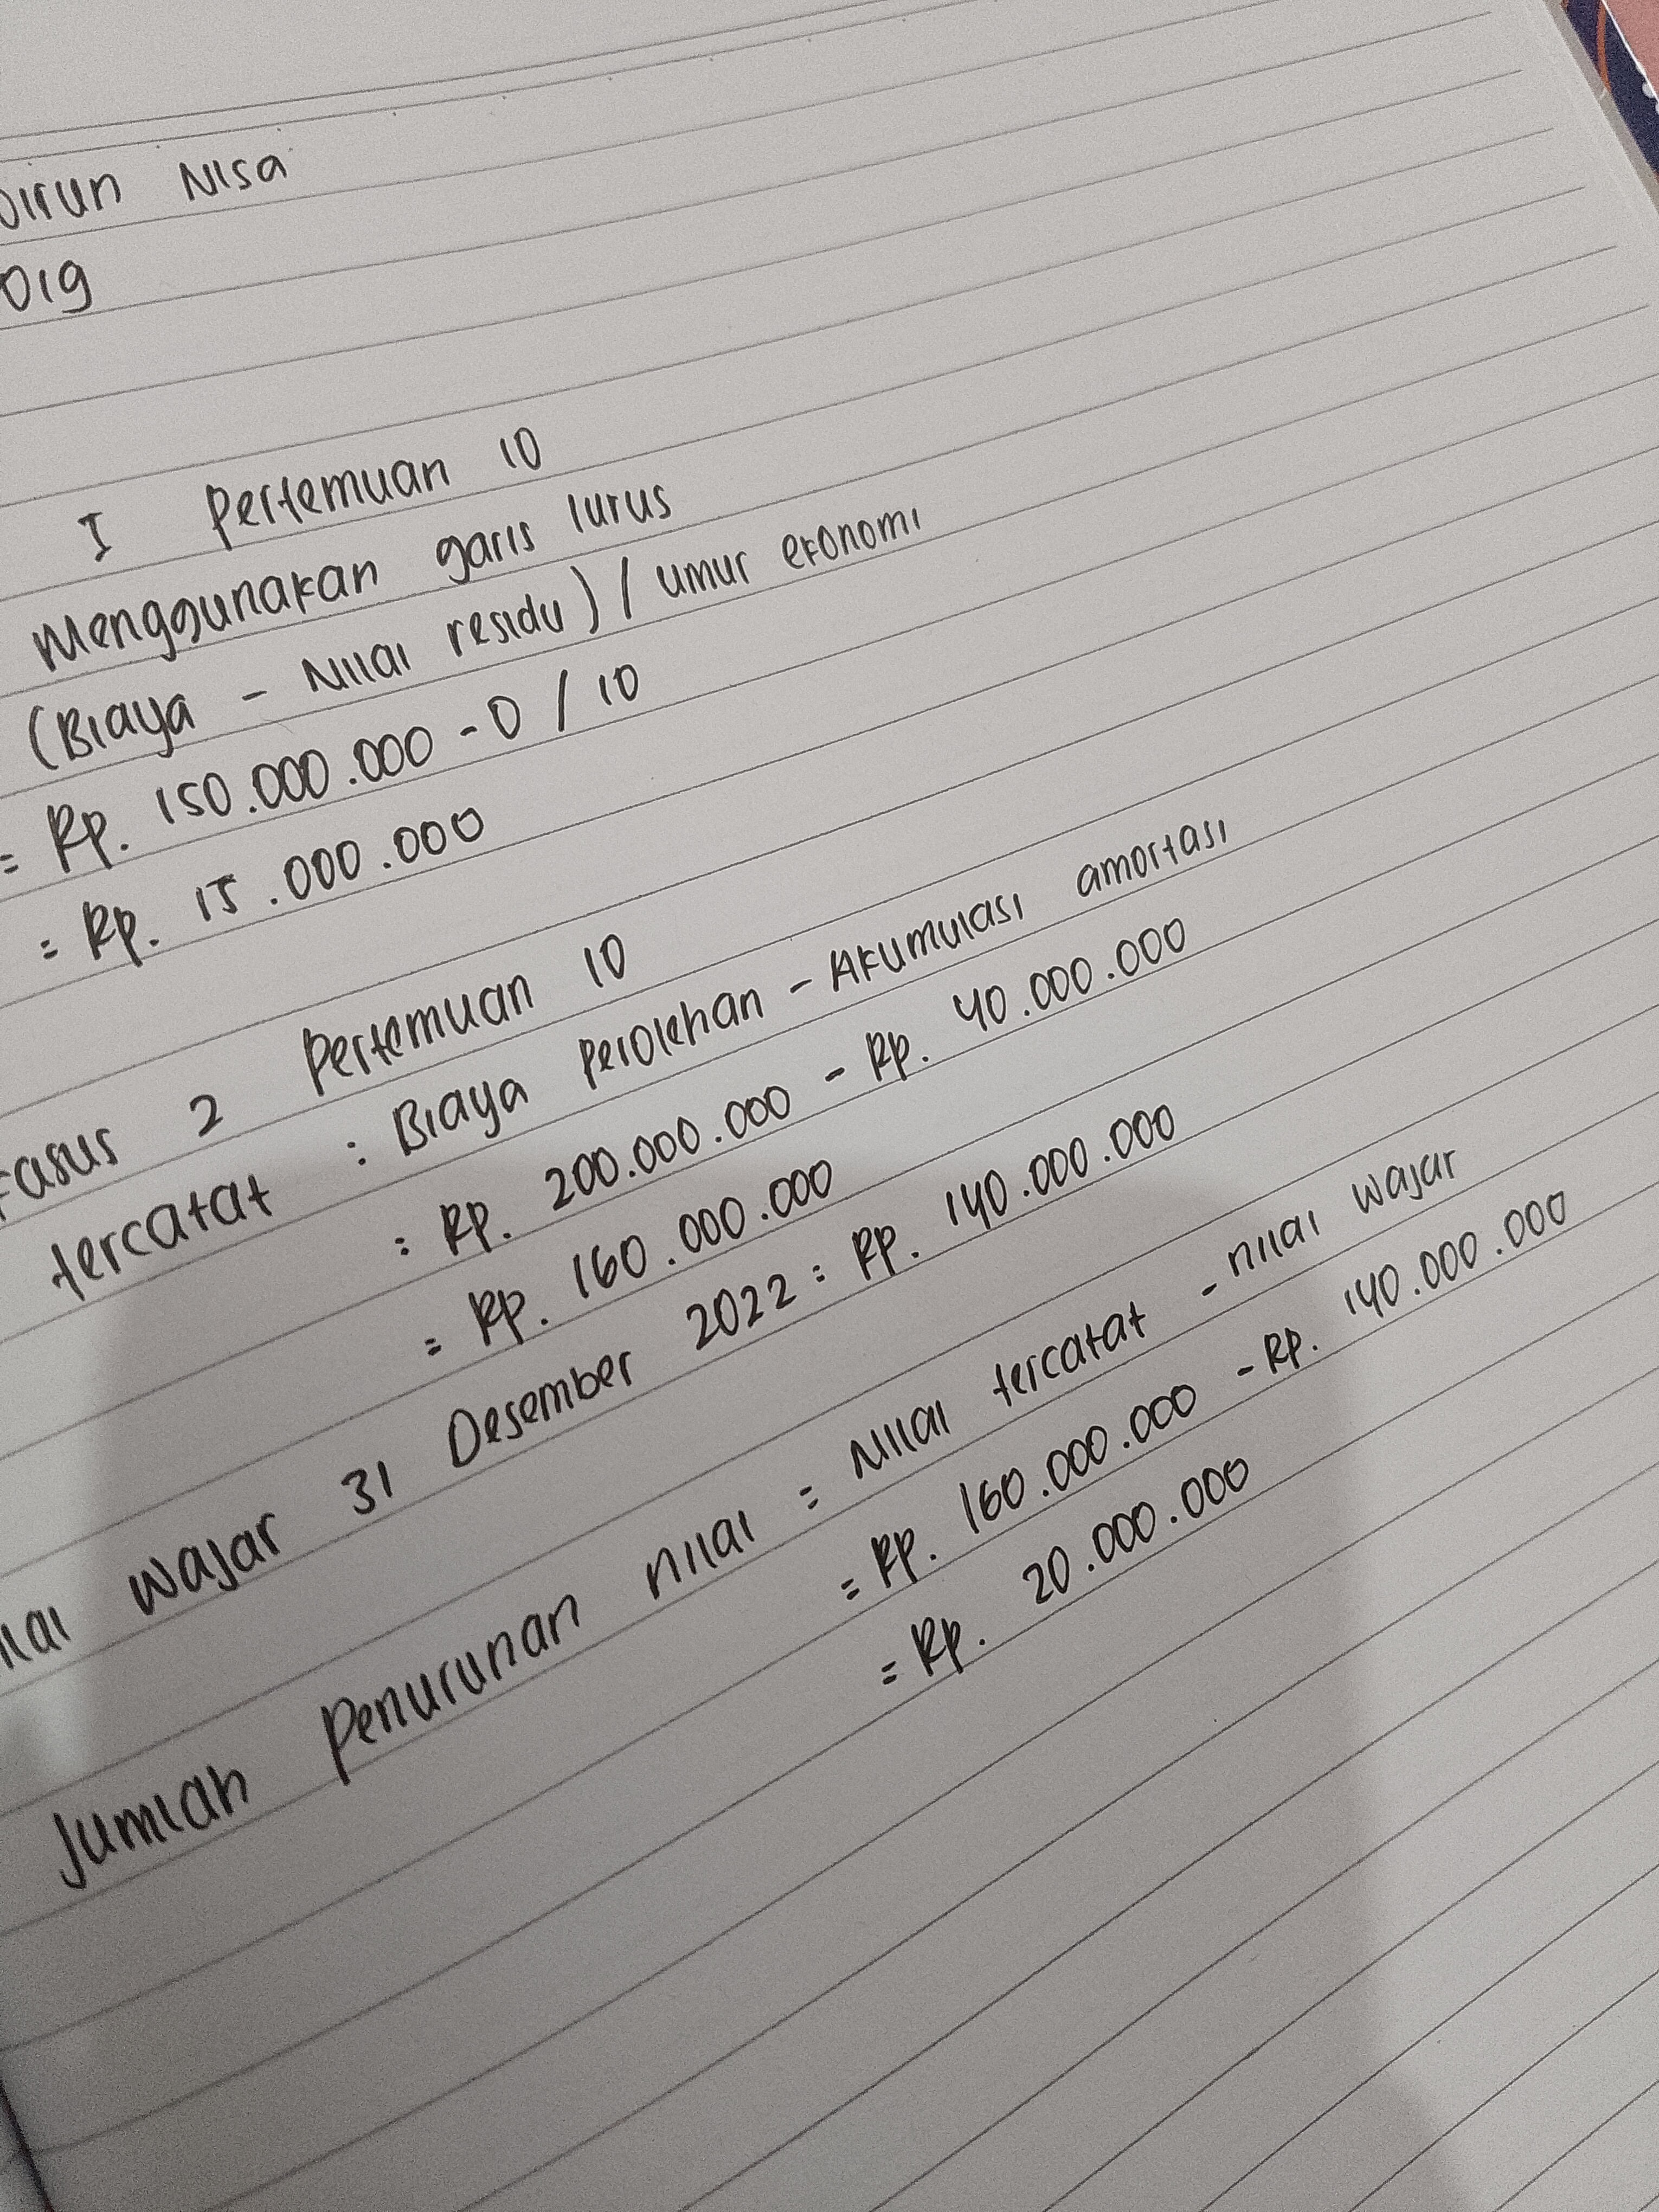 Nisa
019
I Pertemuan 10
Menggunakan garis lurus
(Biaya - Nilai residu) / umur ekonomi
= Rp. 150.000.000 - 0 / 10
= Rp. 15.000.000
Kasus 2 Pertemuan 10
tercatat : Biaya perolehan - Akumulasi amortasi
: Rp. 200.000.000 - Rp. 40.000.000
= Rp. 160.000.000
wajar 31 Desember 2022 : Rp. 140.000.000
Jumlah Penurunan nilai : Nilai tercatat - nilai wajar
= Rp. 160.000.000 - Rp. 140.000.000
= Rp. 20.000.000